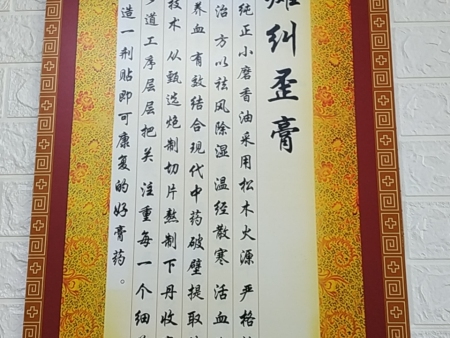 纠歪膏
纯正小磨香油采用松木火源严格
治方以祛风除湿温经散寒活血
养血有效结合现代中药破壁提取
技术从甄选炮制切片熬制下丹收
道工序层层把关注重每一个细
造一剂贴即可康复的好膏药。